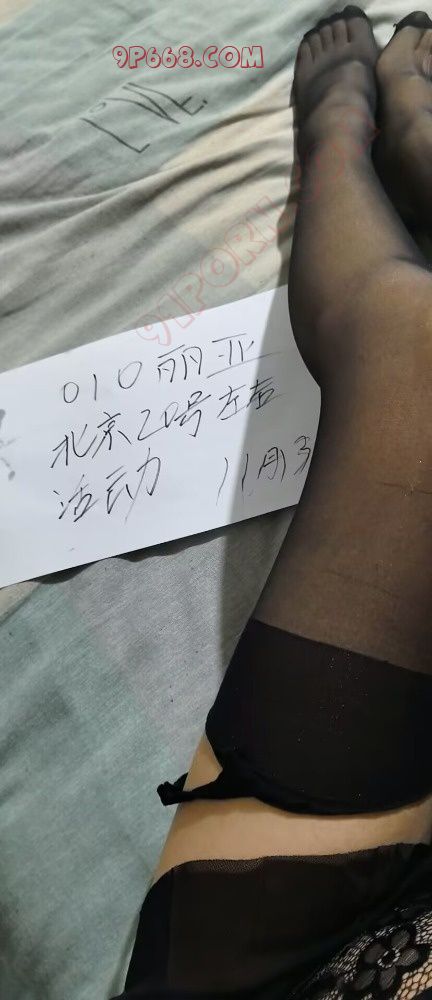 9P668.COM
91PORN.COM
010丽亚
北京20号左右
活动 11月3